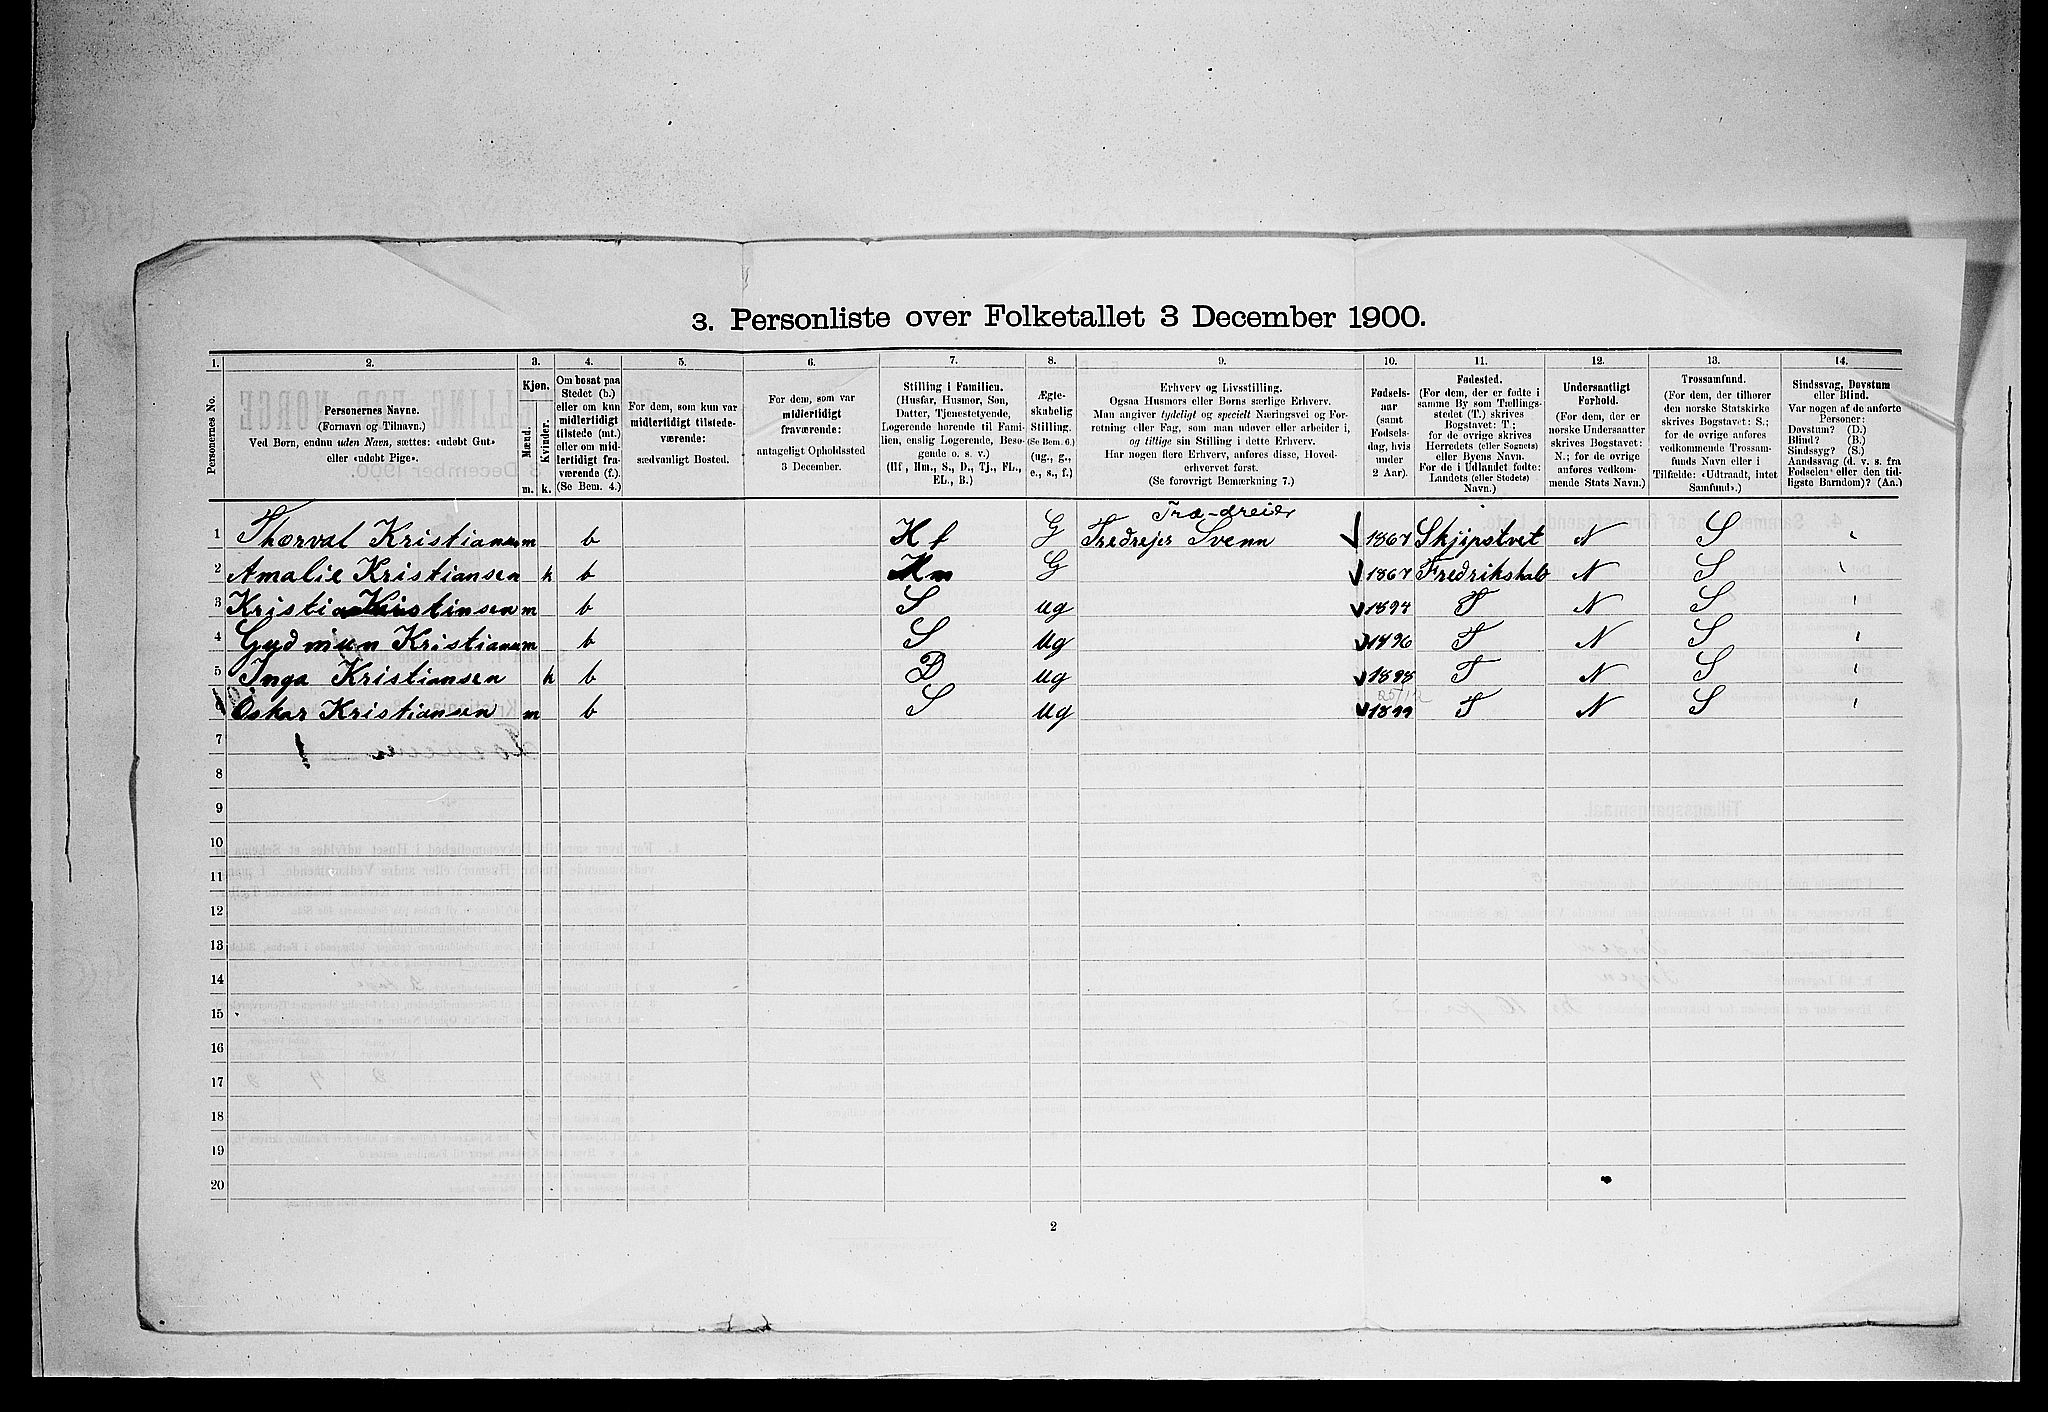 3. Personliste over Folketallet 3 December 1900.
1. 2. 3. 4. 5. 6. 7. 8. 9. 10. 11. 12. 13. 14.
Personernes No.
Personernes Navne.
(Fornavn og Tilnavn.)
Ved Børn, endnu uden Navn, sættes: «udøbt Gut»
eller «udøbt Pige».
Kjøn.
Mænd.
Kvinder.
m. k.
Om bosat paa
Stedet (b.)
eller om kun
midlertidigt
tilstede (mt.)
eller om mid-
lertidigt fra-
værende (f.).
(Se Bem. 4.)
For dem, som kun var
midlertidigt tilstede-
værende:
sædvanligt Bosted.
For dem, som var
midlertidigt
fraværende:
antageligt Opholdssted
3 December.
Stilling i Familien.
(Husfar, Husmor, Søn,
Datter, Tjenestetyende,
Logerende hørende til Fami-
lien, enslig Logerende, Besø-
gende o. s. v.)
(Hf., Hm., S., D., Tj., FL.,
EL., B.)
Ægte-
skabelig
Stilling.
(Se Bem. 6.)
(ug., g.,
e., s., f.)
Erhverv og Livsstilling.
Ogsaa Husmors eller Børns særlige Erhverv.
Man angiver tydeligt og specielt Næringsvei og For-
retning eller Fag, som man udøver eller arbeider i,
og tillige sin Stilling i dette Erhverv.
Har nogen flere Erhverv, anføres disse, Hoved-
erhvervet først.
(Se forøvrigt Bemærkning 7.)
Fødsels-
aar
(samt
Fødsels-
dag, hvis
under
2 Aar).
Fødested.
(For dem, der er fødte i
samme By som Tællings-
stedet (T.) skrives
Bogstavet: T.;
for de øvrige skrives
Herredets (eller Sognets)
eller Byens Navn.
For de i Udlandet fødte:
Landets (eller Stedets)
Navn.)
Undersaatligt
Forhold.
(For dem, der er
norske Undersaatter
skrives Bogstavet:
N.; for de øvrige
anføres vedkom-
mende Stats Navn.)
Trossamfund.
(For dem, der tilhører
den norske Statskirke
skrives Bogstavet: S.;
for de øvrige anføres
vedkommende Trossam-
funds Navn eller i
Tilfælde: «Udtraadt, intet
Samfund».)
Sindssvag, Døvstum
eller Blind.
Var nogen af de anførte
Personer:
Døvstum? (D.)
Blind? (B.)
Sindssyg? (S.)
Aandssvag (d. v. s. fra
Fødselen eller den tid-
ligste Barndom)? (Aa.)
Træ-dreier
1 Thorval Kristiansen m b Hf G Tredrejer Svenn 1867 Skjipstvet N S
2 Amalie Kristiansen k b Hm G 1867 Fredrikshald N S
3 Kristian Kristinsen m b S ug 1894 T N S
4 Gudmun Kristiansen m b S ug 1896 T N S
5 Inga Kristiansen k b D ug 1898 T N S
25/12
6 Oskar Kristiansen m b S ug 1899 T N S
7
8
9
10
11
12
13
14
15
16
17
18
19
20
2